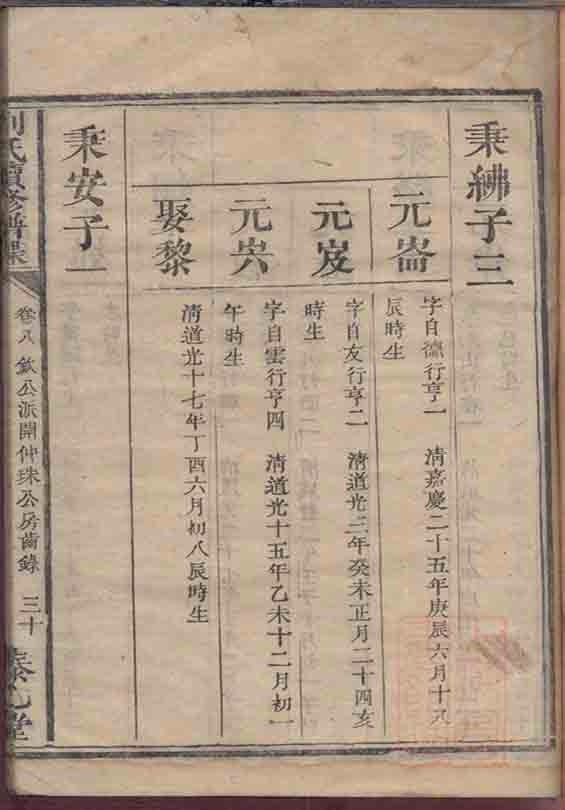 秉紼子三
元崙
字自德行亨一 清嘉慶二十五年庚辰六月十八
辰時生
元岌
字自友行亨二 清道光三年癸未正月二十四亥
時生
元㟧
字自雲行亨四 清道光十五年乙未十二月初一
午時生
娶黎
清道光十七年丁酉六月初八辰時生
秉安子一
劉氏續修譜牒
卷八 欽公派開仲珠公房齒錄 三十
堂